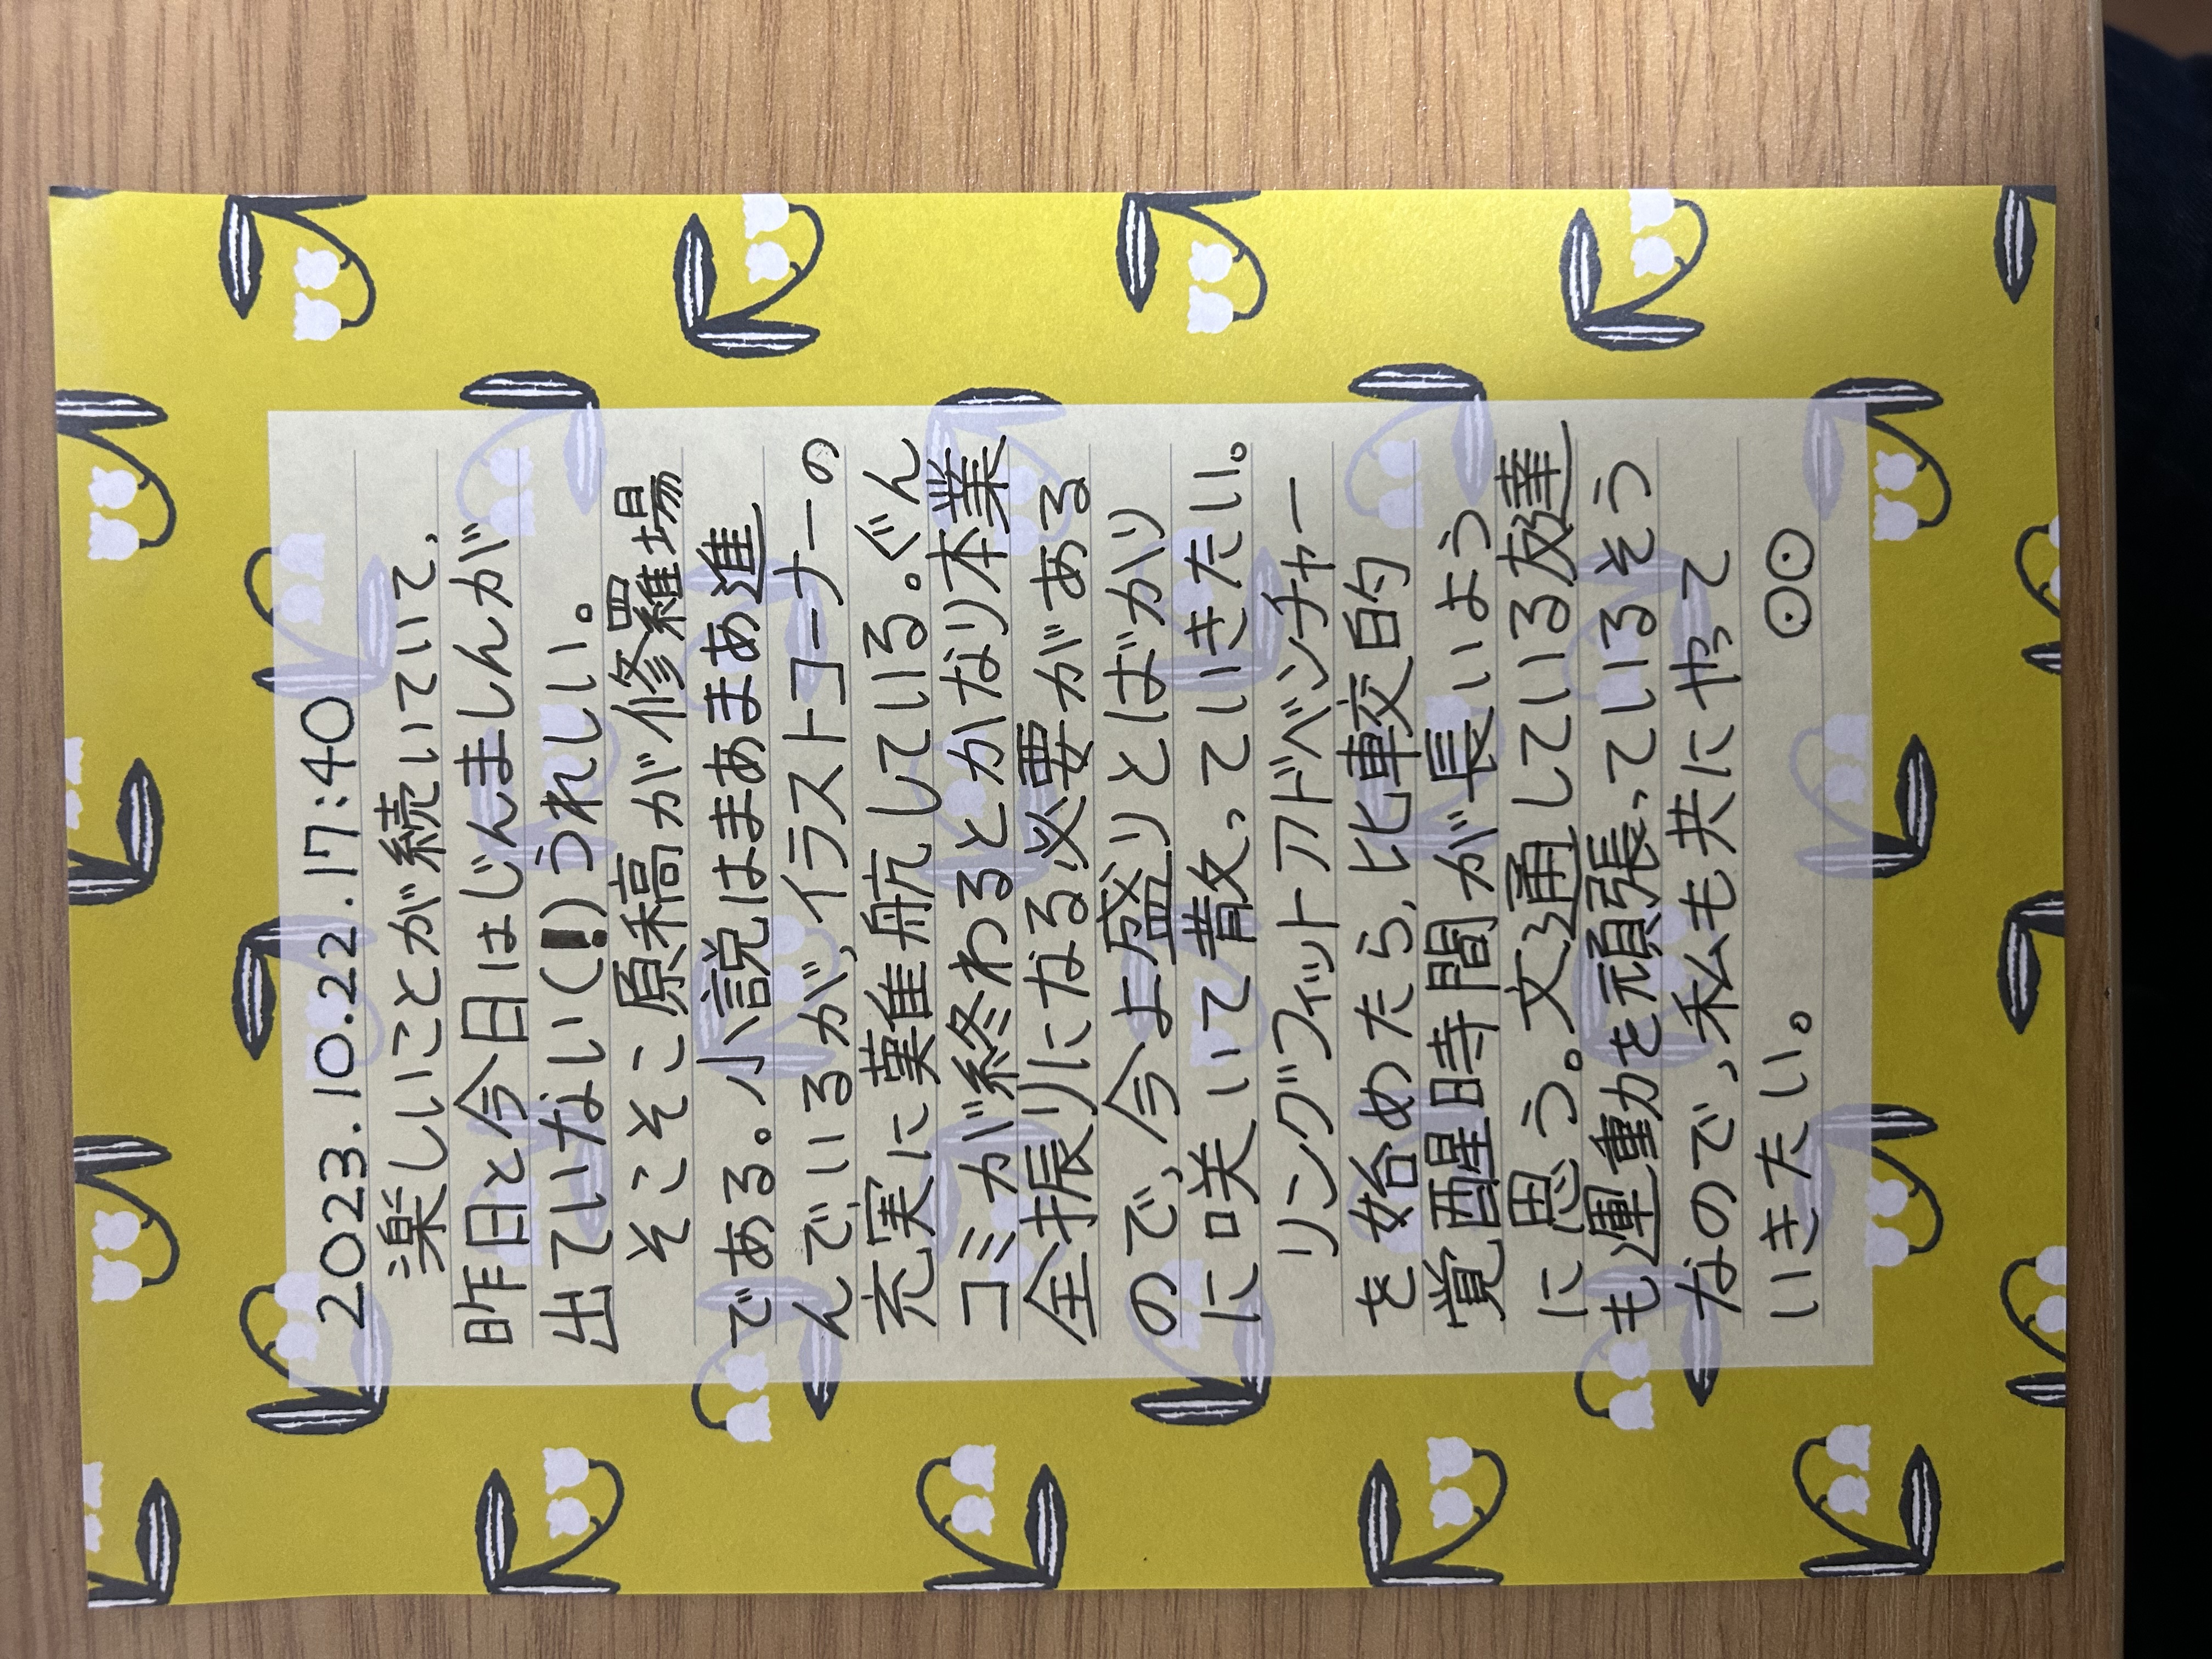 2023.10.22.17:40
楽しいことが続いていて、
昨日と今日はじんましんが
出ていない(!)うれしい。
そこそこ原稿が修羅場
である。小説はまあまあ進
んでいるが、イラストコーナーの
充実に難航している。ぐん
コミが終わるとかなり本業
全振りになる必要がある
ので、今よ盛りとばかり
に咲いて散っていきたい。
リングフィットアドベンチャー
を始めたら、比較的
覚醒時間が長いよう
に思う。文通している友達
も運動を頑張っているそう
なので、私も共にやって
いきたい。 ⊙⊙